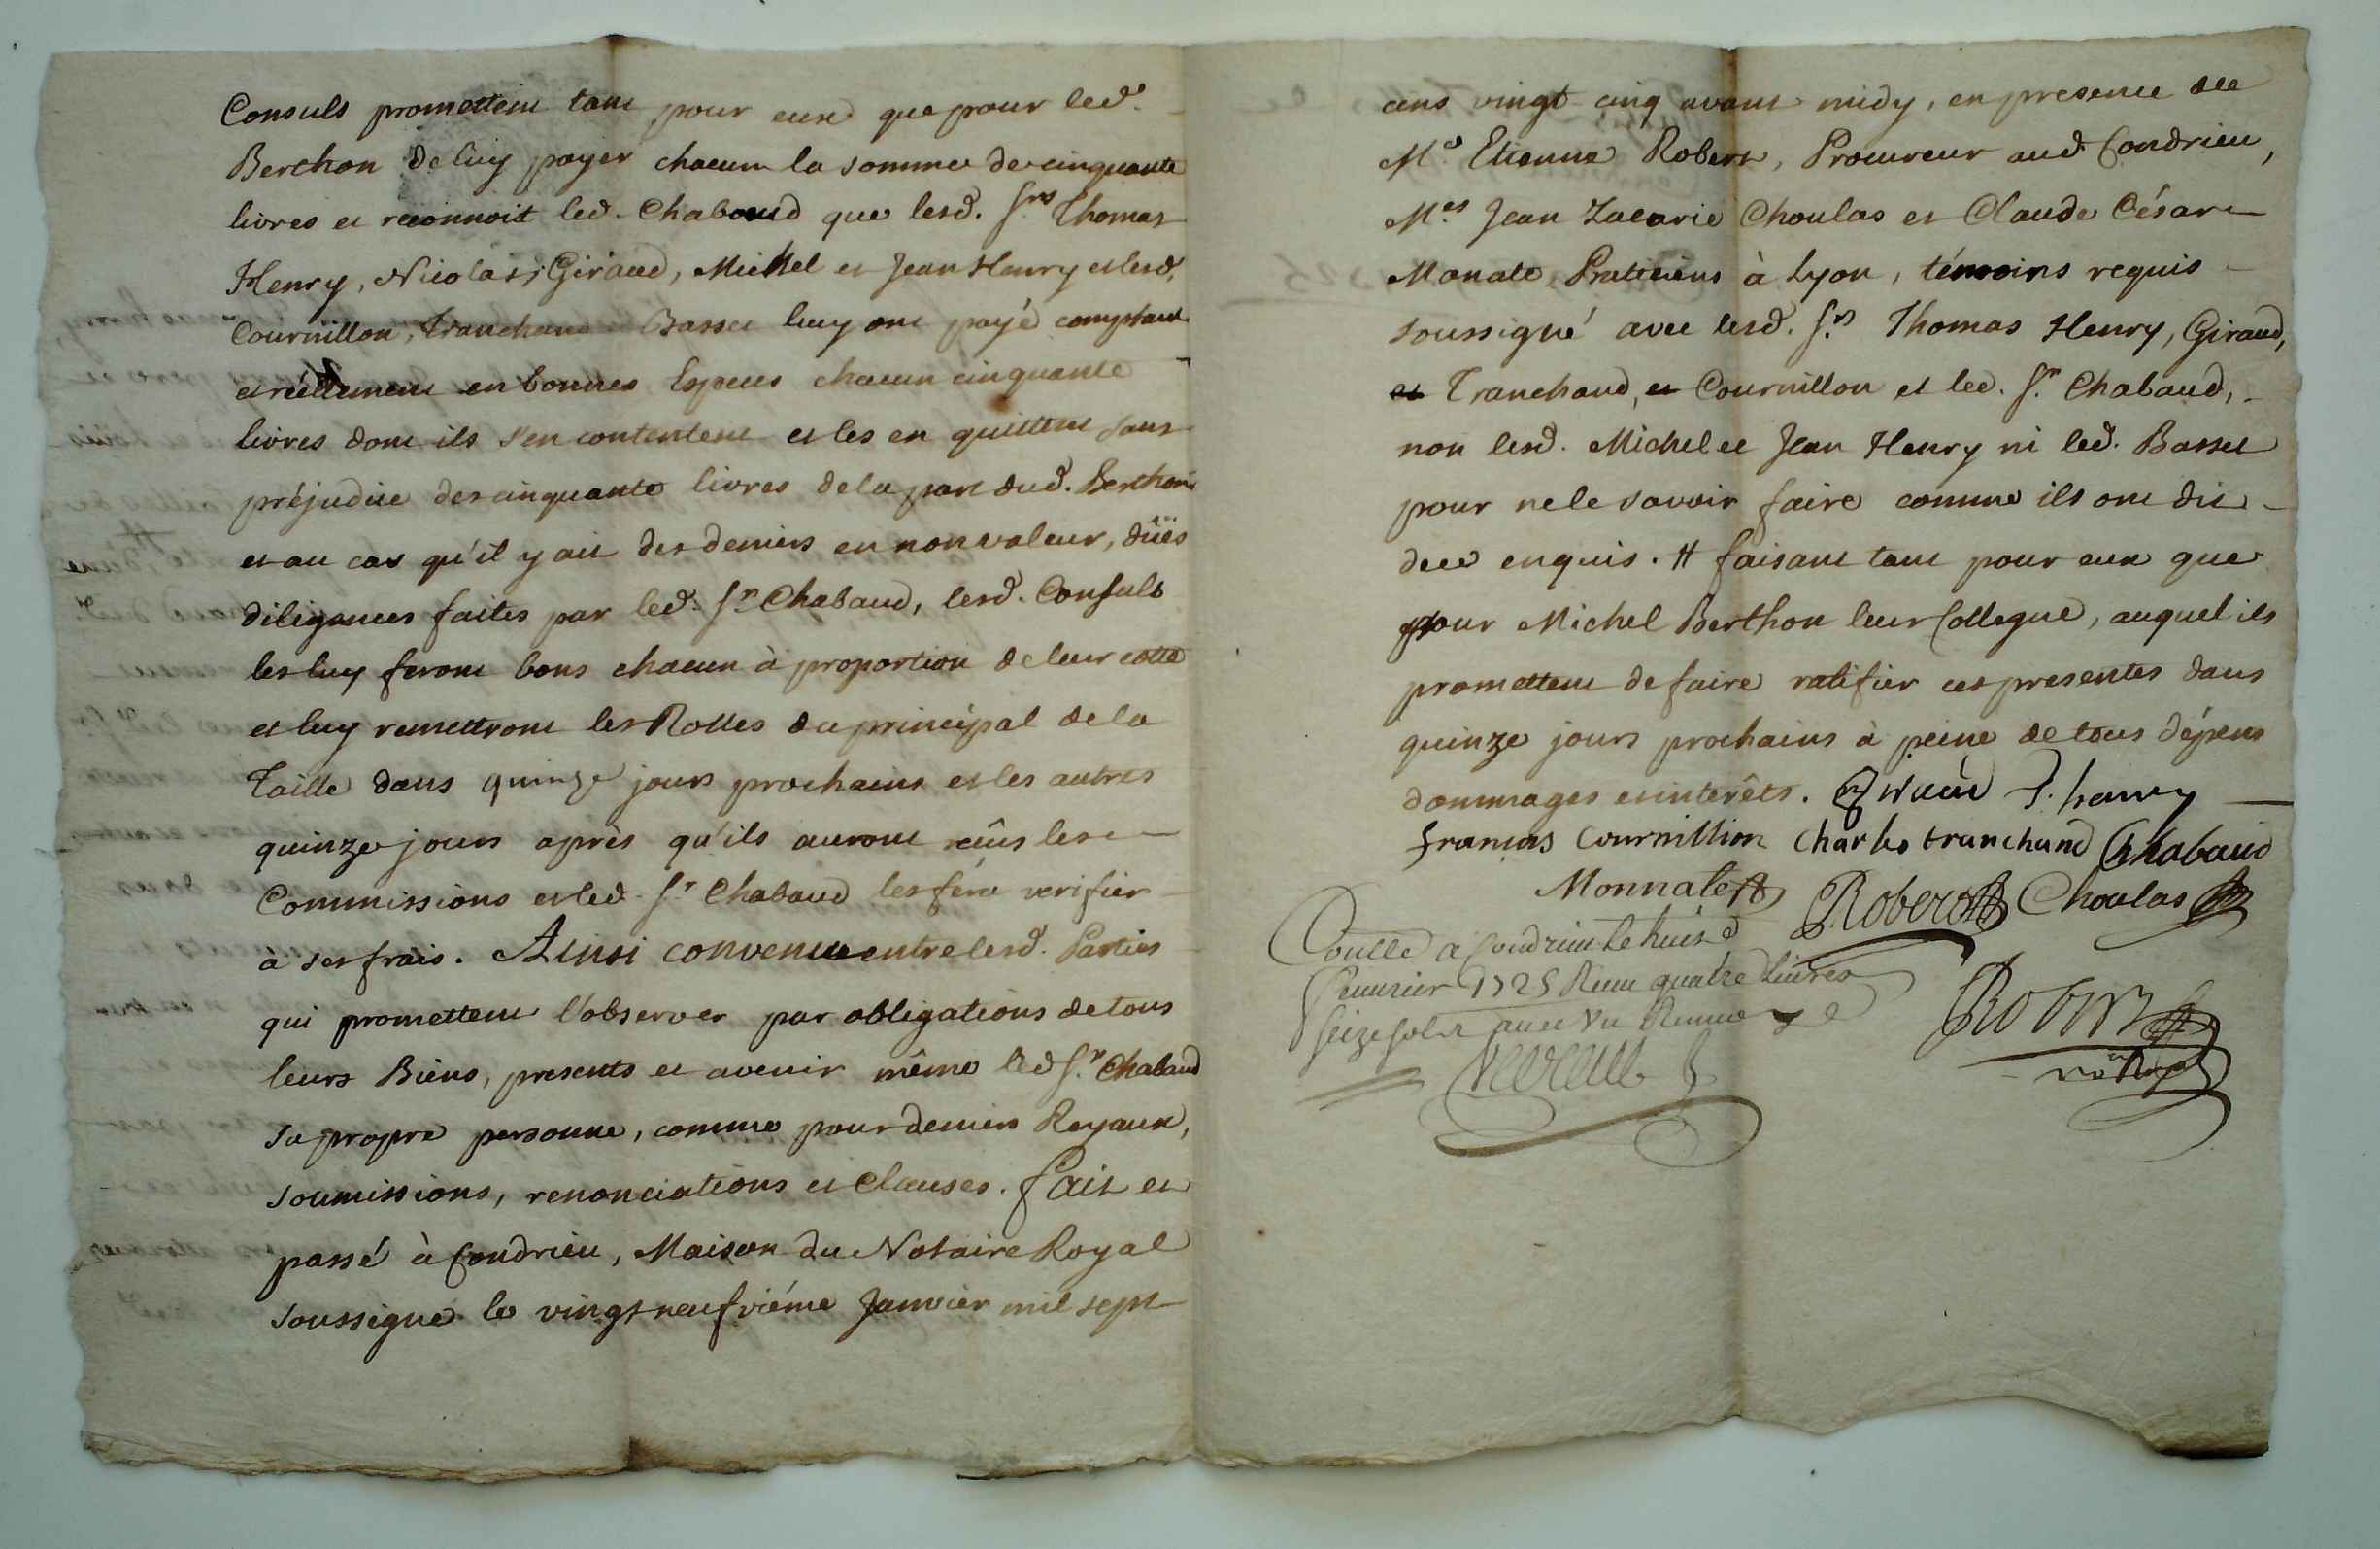 Consuls promettent tant pour eux que pour led.
Berthon de luy payer chacun la somme de cinquante
livres et reconnoit led. Chabaud que lesd. Srs Thomas
Henry, Nicolas Giraud, Michel et Jean Henry et lesd.
Cournillon, Tranchand Basset luy ont payé comptant
et réellement en bonnes Especes chacun cinquante
livres dont ils s'en contentent et les en quittent sans
préjudice des cinquante livres de la part dud. Berthon
et au cas qu'il y ait des deniers en non valeur, dûës
diligences faites par led. Sr Chabaud, lesd. Consuls
les luy feront bons chacun à proportion de leur cotte
et luy remettront les Rolles du principal de la
Taille dans quinze jours prochains et les autres
quinze jours après qu'ils auront reçûs les
Commissions et led. Sr Chabaud les fera verifier
à ses frais. Ainsi convenu entre lesd. Parties
qui promettent l'observer par obligations de tous
leurs Biens, presents et avenir même led Sr Chabaud
sa propre personne, comme pour deniers Royaux,
soumissions, renonciations et Clauses. Fait et
passé à Condrieu, Maison du Notaire Royal
soussigné le vingt neufviéme Janvier mil sept
cens vingt cinq avant midy, en presence de
Me Etienne Robert, Procureur aud Condrieu,
Mes Jean Zacarie Choulas et Claude César
Monate, Praticiens à Lyon, témoins requis
soussigné avec lesd. Srs Thomas Henry, Giraud,
et Tranchand, et Cournillon et led. Sr Chabaud,
non lesd. Michel et Jean Henry ni led. Basset
pour ne le savoir faire comme ils ont dit
de ce enquis. # faisant tant pour eux que
pour Michel Berthon leur Collegue, auquel ils
promettent de faire ratifier ces presentes dans
quinze jours prochains à peine de tous dépens
dommages et interêts. Giraud T. henry
francois Cournillion Charles tranchand Chabaud
Monnate Robert Choulas
Conllé a Condrieu le huit
feuurier 1725 Receu quatre Liures
seize sols
Robert
no Roy